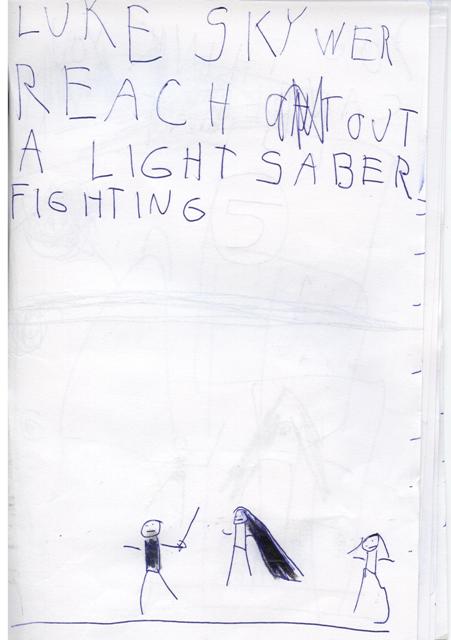 LUKE SKYWER
REACH OUT
A LIGHTSABER
FIGHTING